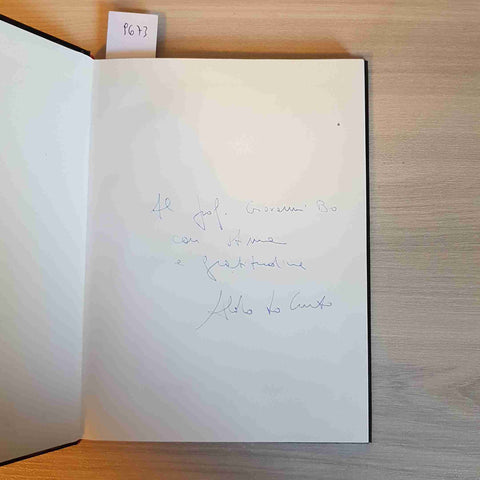 P673
Al prof. Giovanni Bo
con stima
e gratitudine
Aldo Lo Curto